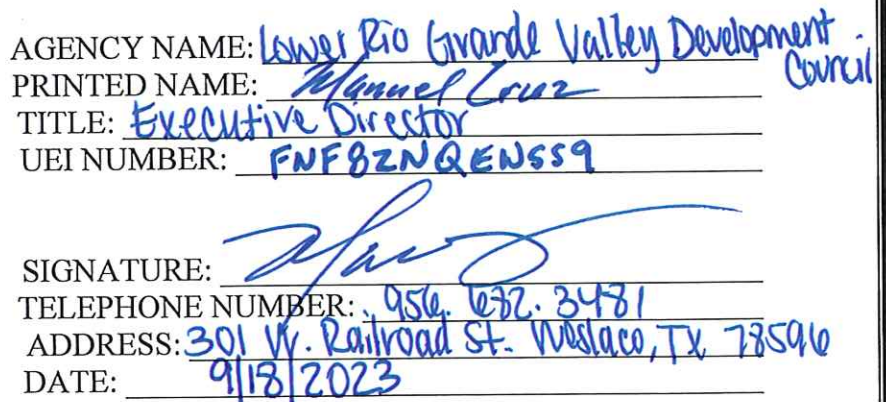 AGENCY NAME: Lower Rio Grande Valley Development Council
PRINTED NAME: Manuel Cruz
TITLE: Executive Director
UEI NUMBER: FNF8ZNQENSS9
SIGNATURE:
TELEPHONE NUMBER: 956. 682. 3481
ADDRESS: 301 W. Railroad St. Weslaco, TX 78596
DATE: 9/18/2023